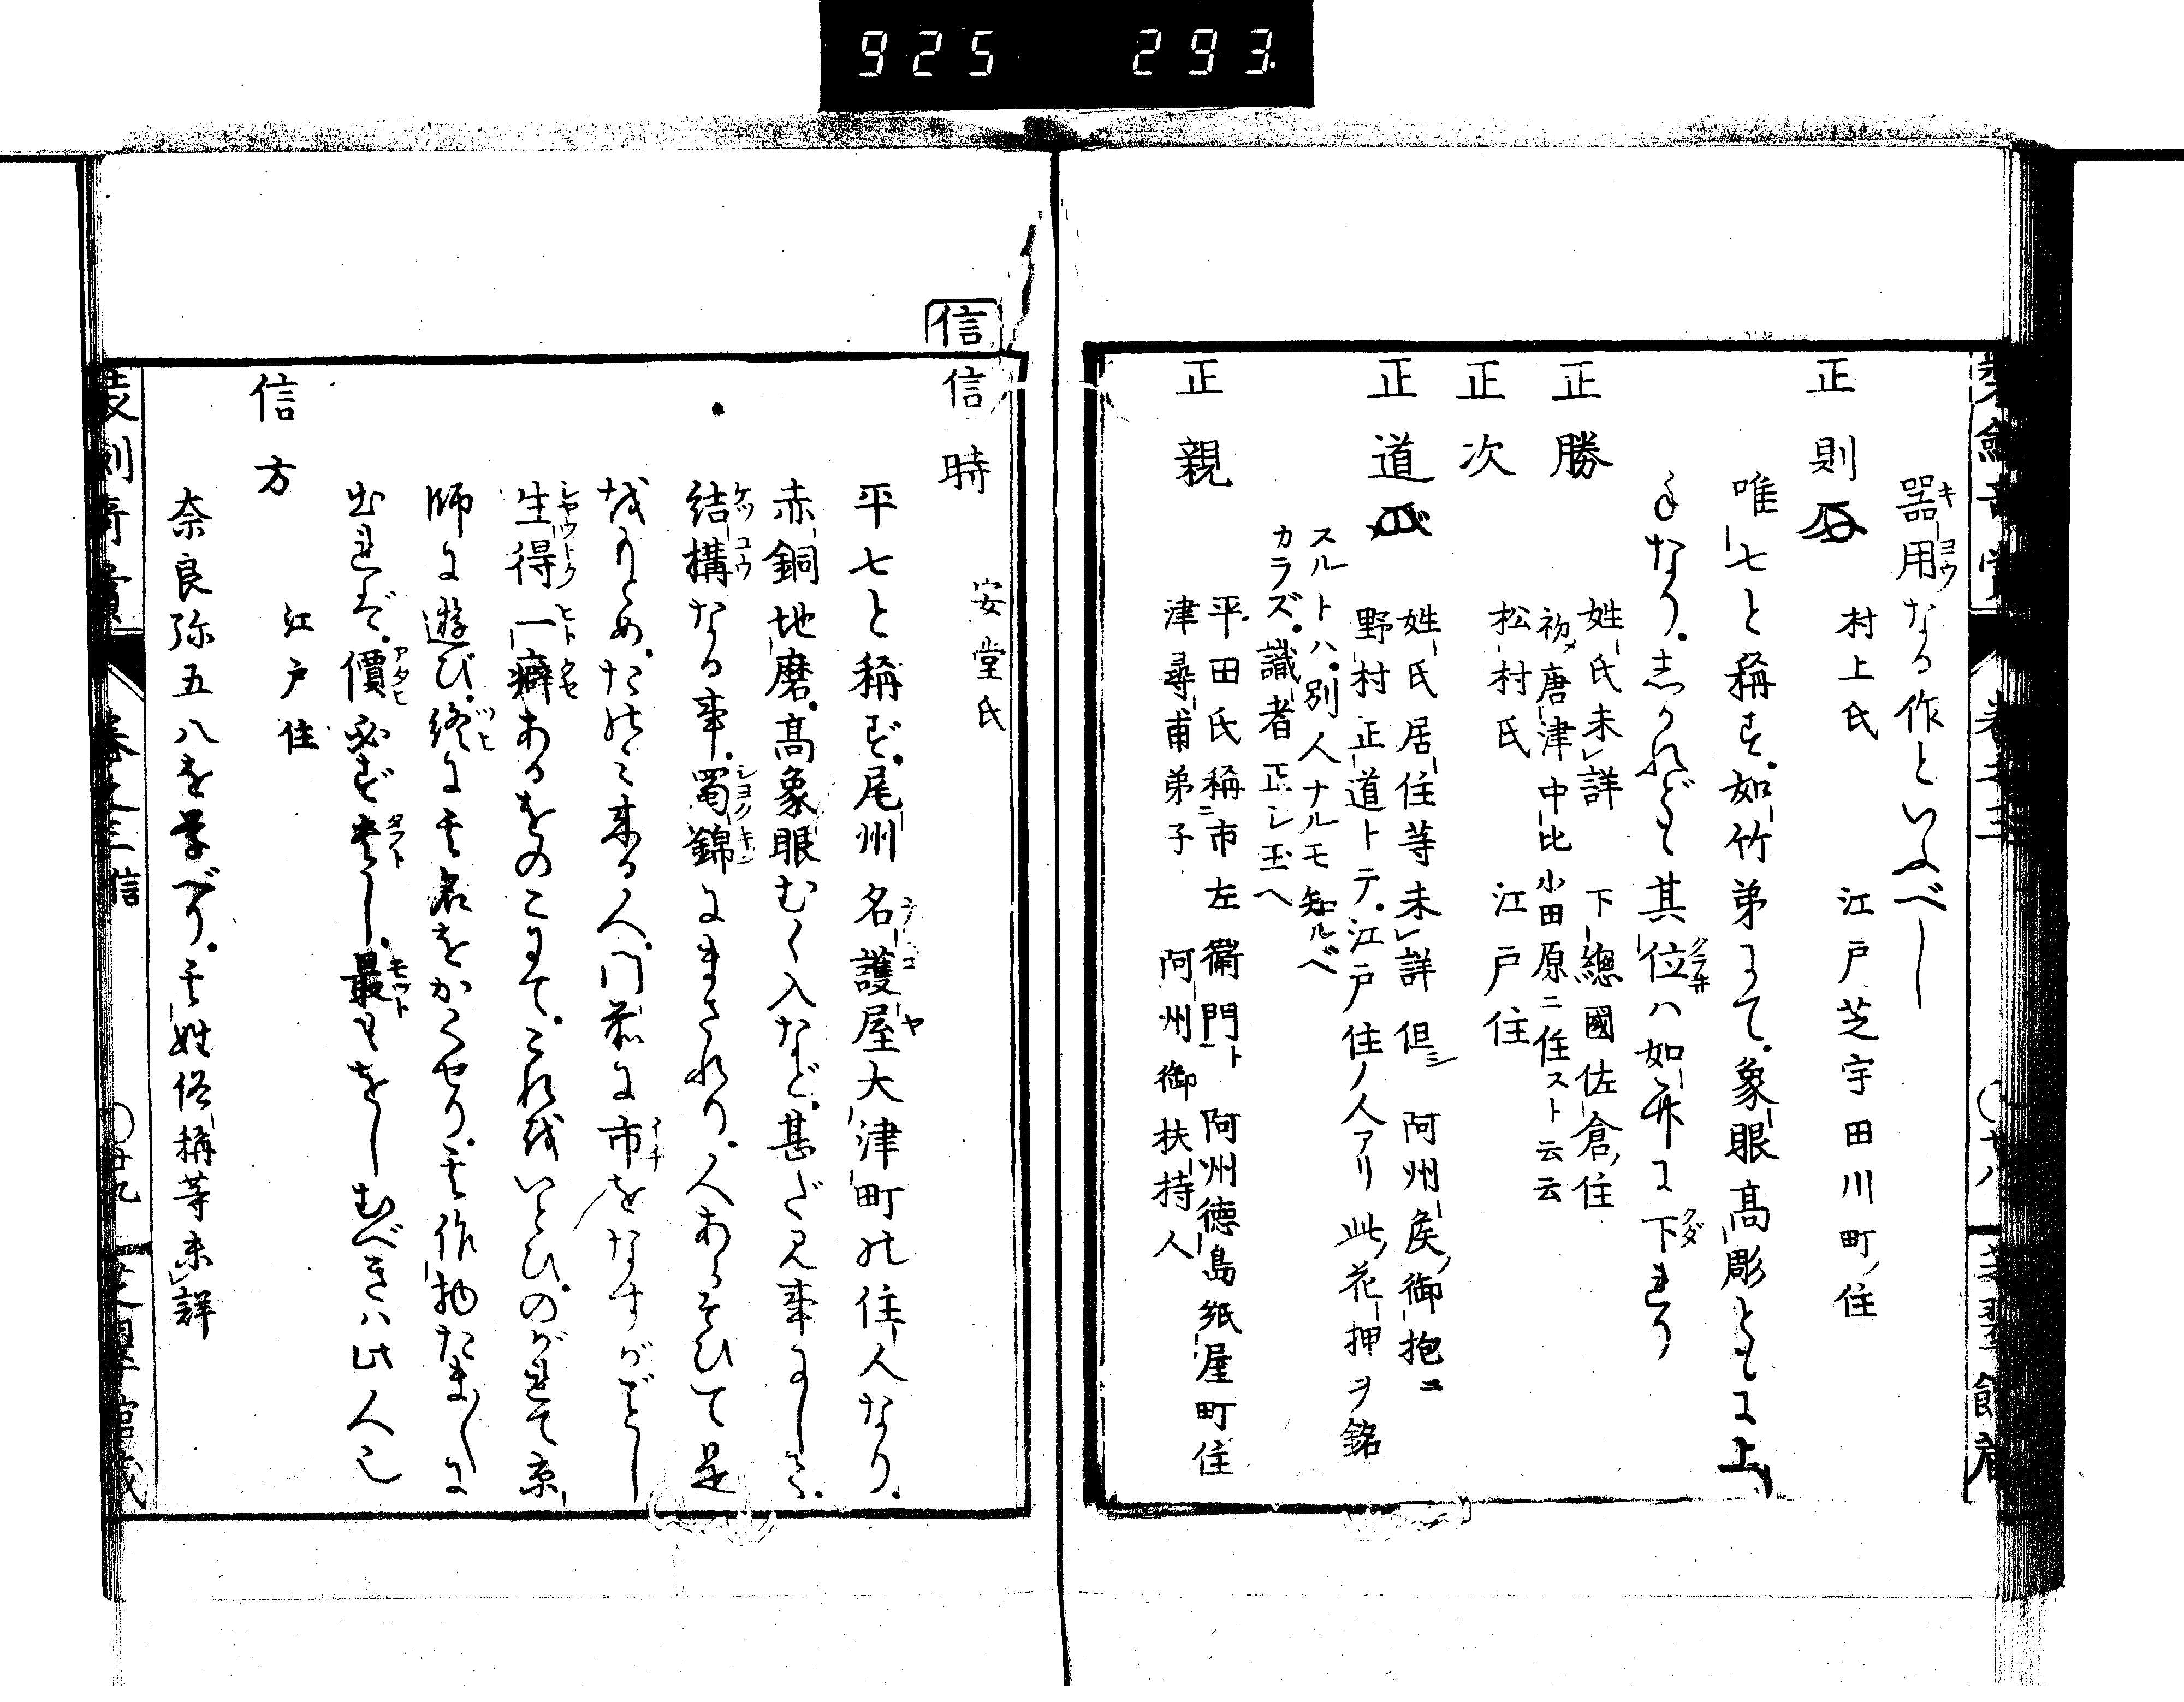 925 293
器用なる作といふべし
正則 村上氏 江戸芝宇田川町ノ住
唯七と称す。如竹弟にて。象眼高彫ともに上
手なり。志かれども其位ハ如竹に下れり
正勝 姓氏未詳 下總國佐倉ノ住
初メ唐津中比小田原ニ住スト云云
正次 松村氏 江戸住
正道 姓氏居住等未詳 但シ 阿州侯ノ御抱ニ
野村正道トテ。江戸住ノ人アリ 此ノ花押ヲ銘
スルトハ。別人ナルモ知ルベ
カラズ。識者正レ玉へ
正親 平田氏稱ニ市左衛門ト 阿州徳島紙屋町住
津尋甫弟子 阿州御扶持人
信
信時 安堂氏
平七と稱す。尾州名護屋大津町の住人なり。
赤銅地磨。高象眼むく入など。甚だ見事にして。
結構なる事。蜀錦にまされり。人あらそひて是
をもとめ。たのミ来る人。門前に市をなすがごとし
生得一癖あるをのこにて。これをいとひ。のがれて京
師に遊び。終に其名をかくせり。其作物たまたまに
出れば。價必ず貴し。最もをしむべきハ此人也
信方 江戸住
奈良弥五八を学べり。其姓俗稱等未詳
卷之三 信